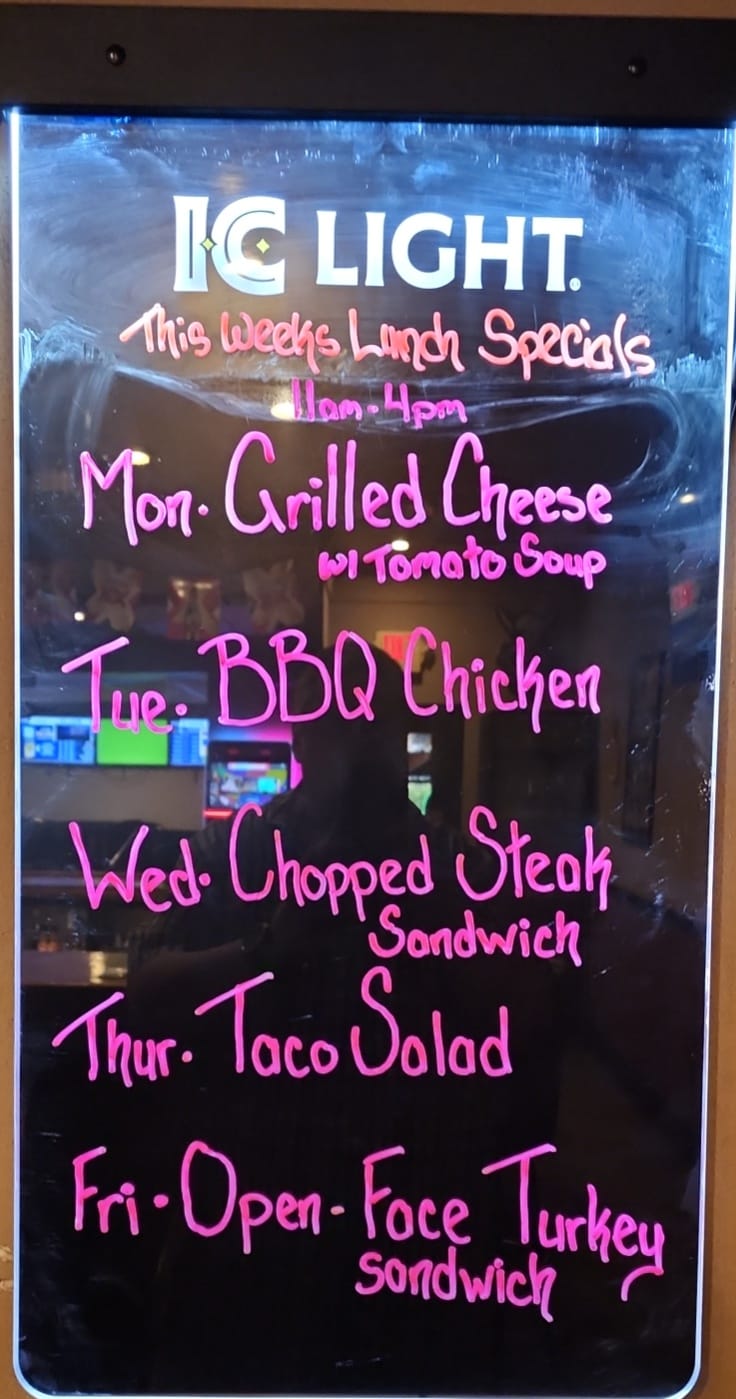 IC LIGHT®
This Weeks Lunch Specials
11am-4pm
Mon. Grilled Cheese
w/ Tomato Soup
Tue. BBQ Chicken
Wed. Chopped Steak
Sandwich
Thur. Taco Salad
Fri. Open-Face Turkey
sandwich